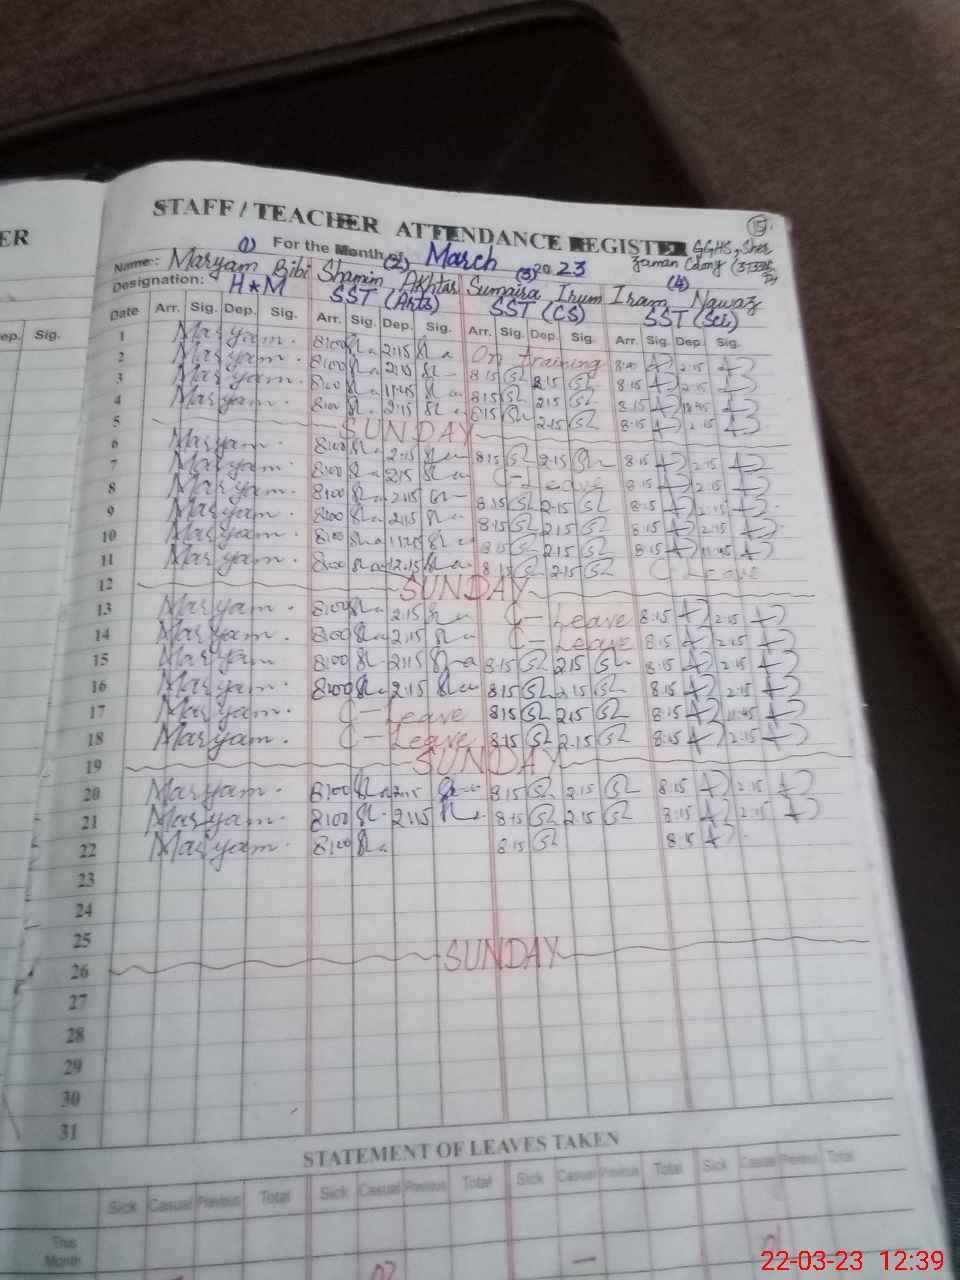 ER
STAFF / TEACHER ATTENDANCE REGISTER
15
(1) For the Month of March 2023
GGHS, Sher
Zaman Colony
Name:: Maryam Bibi (2) Shamim Akhtar (3) Sumaira Irum (4) Iram Nawaz
Designation: H*M SST (Arts) SST (CS) SST (Sci)
Date Arr. Sig. Dep. Sig. Arr. Sig. Dep. Sig. Arr. Sig. Dep. Sig. Arr. Sig. Dep. Sig.
ep. Sig.
1 Maryam. 8:00 2:15 On training 8:15 2:15
2 Maryam. 8:00 2:15 8:15 8:15 8:15 2:15
3 Maryam. 8:00 11:45 8:15 2:15 8:15 11:45
4 Maryam. 8:00 2:15 8:15 2:15 8:15 2:15
5 SUNDAY
6 Maryam. 8:00 2:15 8:15 2:15 8:15 2:15
7 Maryam. 8:00 2:15 C-Leave 8:15 2:15
8 Maryam. 8:00 2:15 8:15 2:15 8:15 2:15
9 Maryam. 8:00 2:15 8:15 2:15 8:15 2:15
10 Maryam. 8:00 8:15 2:15 8:15 11:45
11 Maryam. 8:00 12:15 8:15 2:15 C Leave
12 SUNDAY
13 Maryam. 8:00 2:15 C-Leave 8:15 2:15
14 Maryam. 8:00 2:15 C-Leave 8:15 2:15
15 Maryam. 8:00 2:15 8:15 2:15 8:15 2:15
16 Maryam. 8:00 2:15 8:15 2:15 8:15 2:15
17 Maryam. C-Leave 8:15 2:15 8:15 11:45
18 Maryam. C-Leave 8:15 2:15 8:15 2:15
19 SUNDAY
20 Maryam. 8:00 2:15 8:15 2:15 8:15 2:15
21 Maryam. 8:00 2:15 8:15 2:15 8:15 2:15
22 Maryam. 8:00 8:15 8:15
23
24
25
26 SUNDAY
27
28
29
30
31
STATEMENT OF LEAVES TAKEN
Sick Casual Previous Total Sick Casual Previous Total Sick Casual Previous Total Sick Casual Previous Total
This
Month
02 – 01
22-03-23 12:39